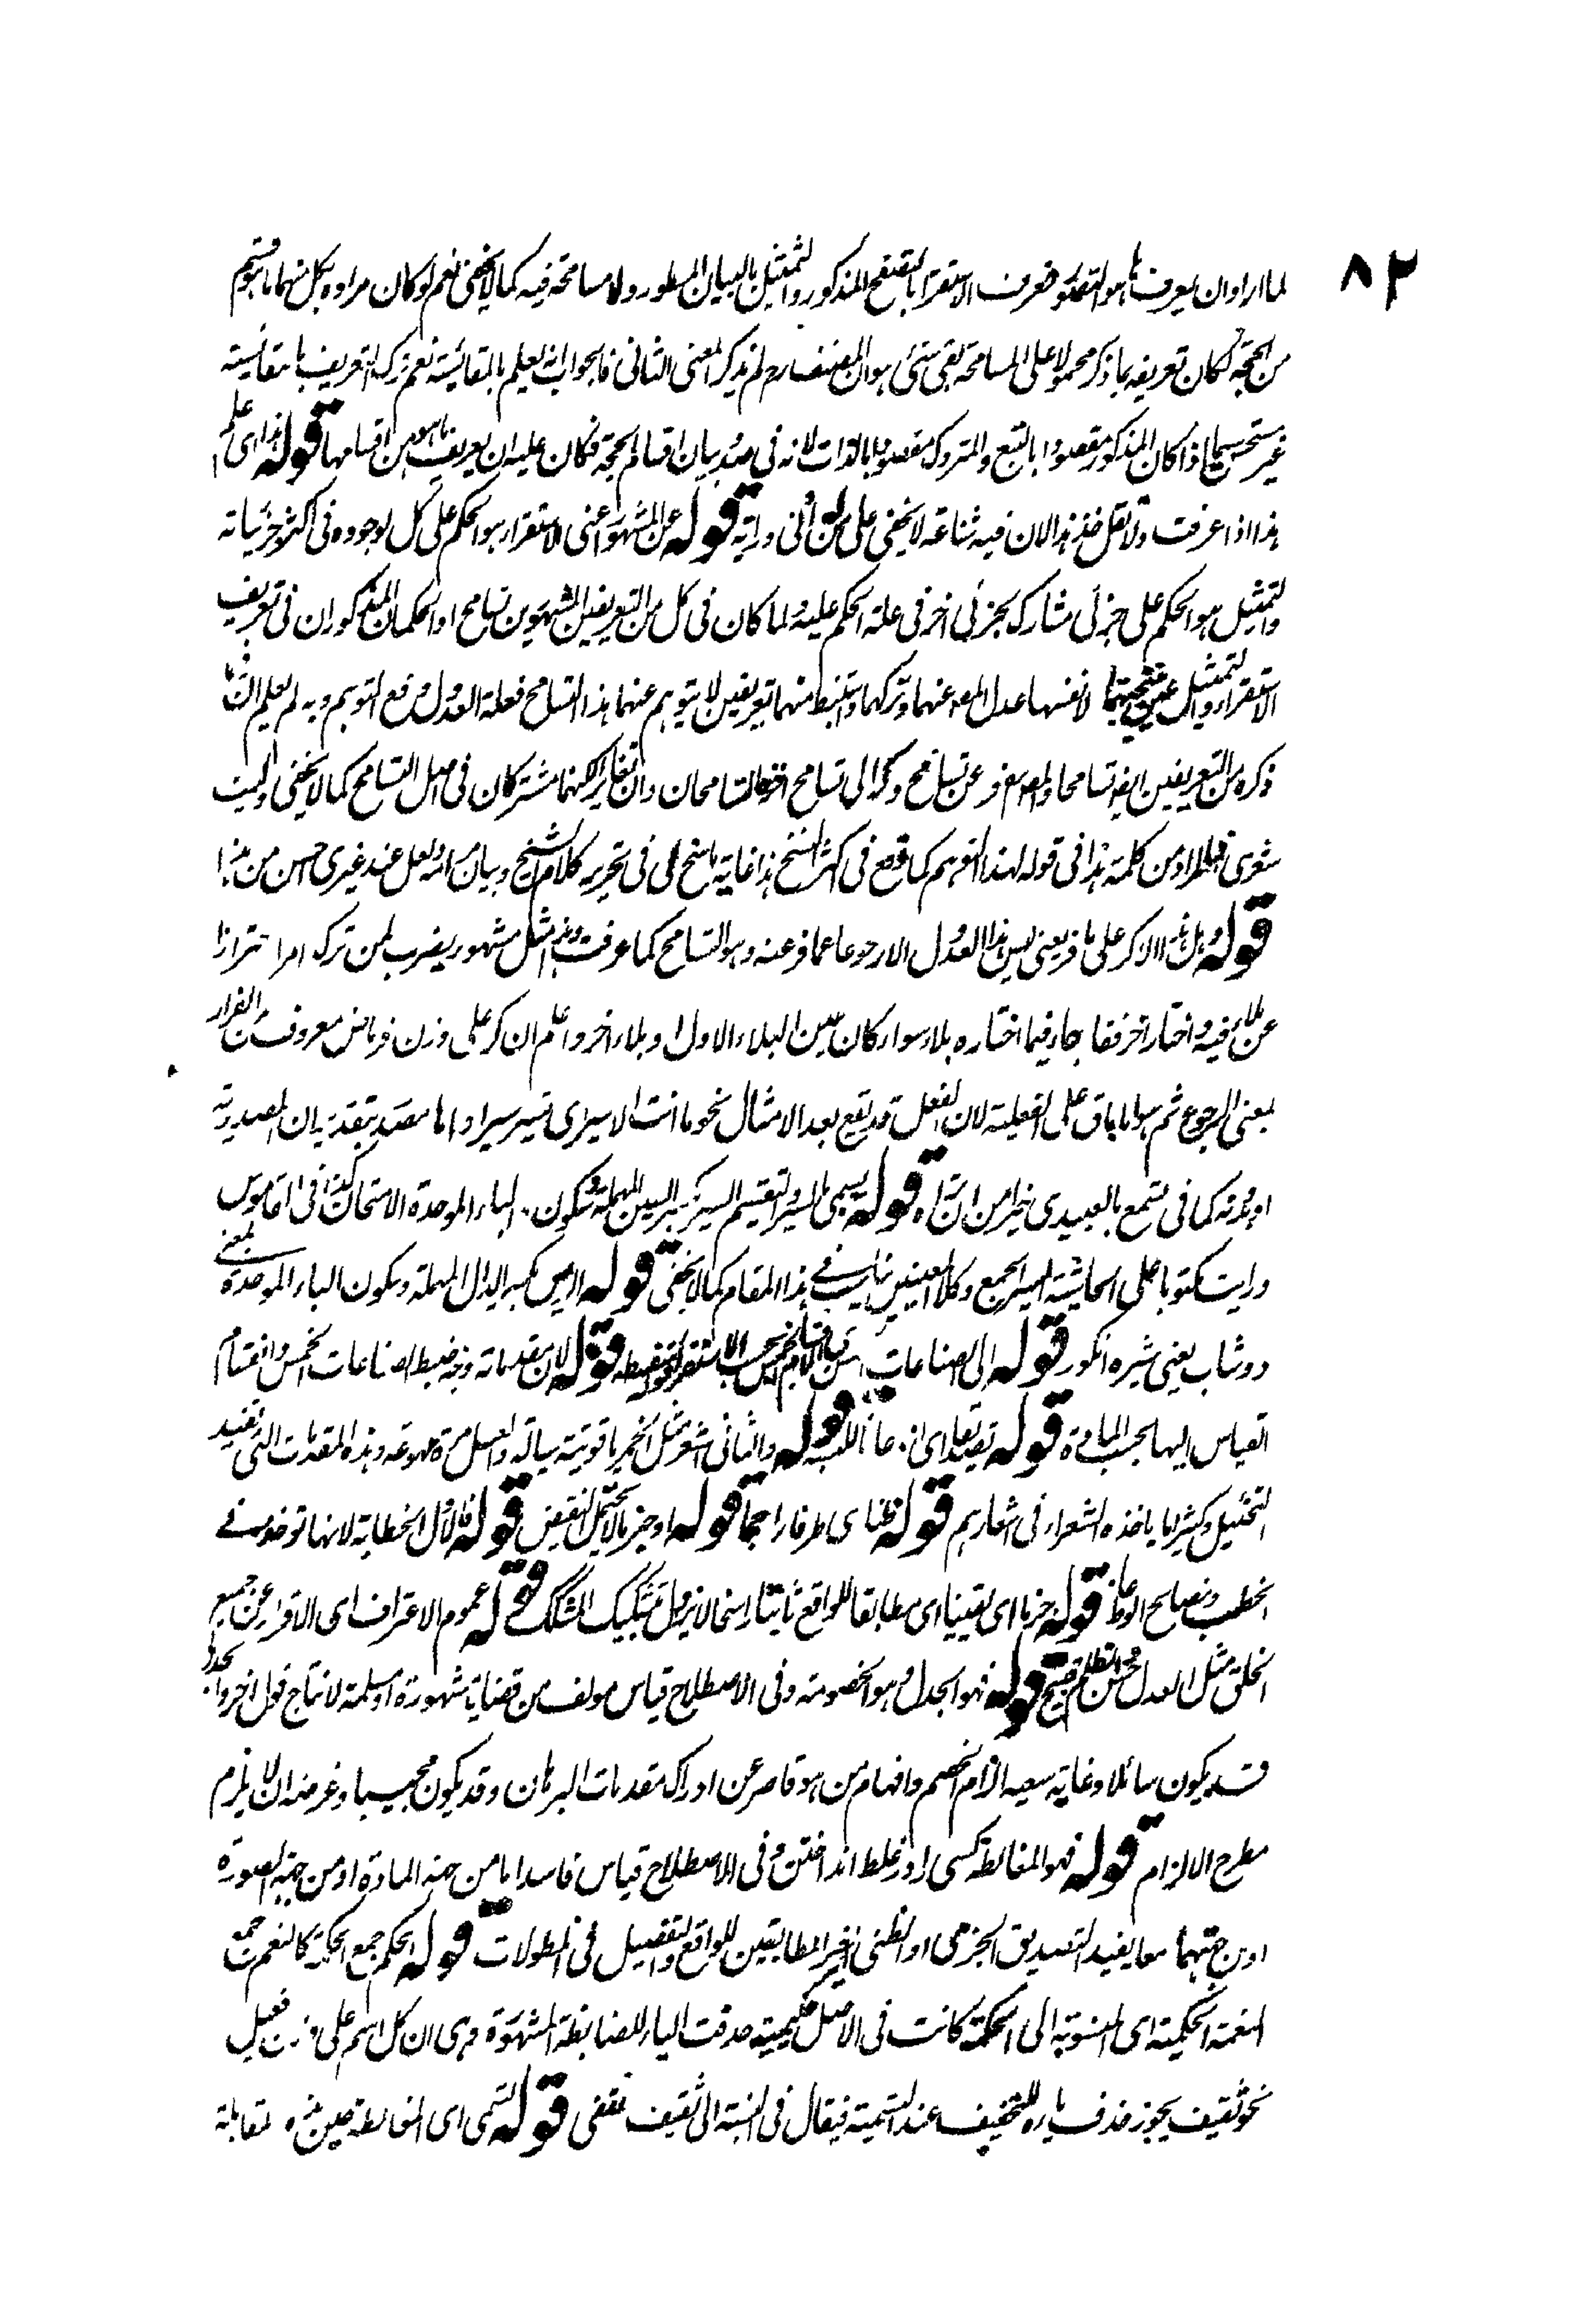 ٨٢
لما اراد ان يعرف ما هو المقصود فعرف الاستقراء بالتصفح المذكور والتمثيل بالبيان المسطور ولا مسامحة فيه كما لا يخفى نعم لو كان مراده بكل منهما ما هو قسم
من الحجة لكان تعريفه بما ذكر محمولا على المسامحة بقى شئ هو ان المصنف رح لم يذكر المعنى الثانى فالجواب انه يعلم بالمقائسة نعم ترك التعريف بالمقائسة
غير مستحسن اذا كان المذكور مقصودا بالتبع والمتروك مقصودا بالذات لانه فى صدد بيان اقسام الحجة فكان عليه ان يعرف ما هو من اقسامها قوله هذا اى علم
هذا اذا عرفت ولا تقل خذ هذا لان فيه شناعة لا يخفى على من له ادنى دراية قوله عن المشهور اعنى الاستقراء هو الحكم على كل لوجوده فى اكثر جزئياته
والتمثيل هو الحكم على جزئى مشارك بجزئى اخر فى علة الحكم عليه ولما كان فى كل من التعريفين المشهورين تسامح اذ الحكمان المذكوران فى تعريف
الاستقراء والتمثيل لانفسهما عدل المص عنهما وتركهما واستنبط منهما تعريفين لا يتوهم عنهما هذا التسامح فعلة العدول دفع التوهم وبه لم يعلم ان ما
ذكره من التعريفين ايضا تسامحا والمص فر عن تسامح وكر الى تسامح اخر والتسامحان وان تغايرا لكنهما مشتركان فى اصل التسامح كما لا يخفى وليت
شعرى ما المراد من كلمة هذا فى قوله لهذا التوهم كما وقع فى اكثر النسخ هذا غاية ما سنح لى فى تحرير كلام الشيخ وبيان مرامه ولعل عند غيرى احسن من هذا
قوله وهل هذا الا كر على ما فر يعنى ليس هذا العدول الا رجوعا عما فر عنه وهو التسامح كما عرفت وهذا مثل مشهور يضرب لمن ترك امرا احترازا
عن بلاء فيه واختار اخر فقد جاء فيما اختاره بلاء سواء كان عين البلاء الاول او بلاء اخر واعلم ان كر على وزن فر ماض معروف من الفرار
بمعنى الرجوع ثم هو اما باق على الفعلية لان الفعل قد يقع بعد الا مثال نحو ما انت الا سيرى تسير سيرا واما مصدر بتقدير ان المصدرية
او بدونه كما فى تسمع بالمعيدى خير من ان تراه قوله يسمى بالسبر والتقسيم السبر بكسر السين المهملة وسكون الباء الموحدة الامتحان كذا فى القاموس
ورايت مكتوبا على الحاشية السبر الجمع وكلا المعنيين يناسب فى هذا المقام كما لا يخفى قوله الدبس بكسر الدال المهملة وسكون الباء الموحدة بمعنى
دوشاب يعنى شيره انكور قوله الى الصناعات الخمس قوله لان مقدماته وجه ضبط الصناعات الخمس وانقسام
القياس اليها بحسب المادة قوله تصديقا اى اذعانا للنسبة قوله والثانى شعر مثل الخمر ياقوتية سيالة والعسل مرة مهوعة وهذه المقدمات التى تفيد
التخئيل وكثيرا ما ياخذه الشعراء فى اشعارهم قوله ظنا اى طرفا راجحا قوله او جزما لا يحتمل النقيض قوله فالاول الخطابة لانها توخذ فى
الخطب ونصائح الوعاظ قوله جزما اى يقينيا اى مطابقا للواقع ثابتا راسخا لا يزول بتشكيك المشكك قوله عموم الاعتراف اى الاقرار عن جميع
الخلق مثل العدل حسن والظلم قبيح قوله فهو الجدل وهو الخصومة وفى الاصطلاح قياس مولف من قضايا مشهورة او مسلمة لانتاج قول اخر والجدلى
قد يكون سائلا وغاية سعيه الزام الخصم وافهام من هو قاصر عن ادراك مقدمات البرهان وقد يكون مجيبا وغرضه ان لا يلزم
مطرح الالزام قوله فهو المغالطة كسى را در غلط انداختن وفى الاصطلاح قياس فاسد اما من جهة المادة او من جهة الصورة
او من جهتهما معا يفيد التصديق الجزمى او الظنى الغير المطابقين للواقع والتفصيل فى المطولات قوله الحكم جمع الحكمة كالنعم جمع
النعمة الحكمية اى المنسوبة الى الحكمة كانت فى الاصل حكيمية حذفت الياء للضابطة المشهورة وهى ان كل اسم على وزن فعيل
نحو ثقيف يجوز حذف ياءه للتخفيف عند التسمية فيقال فى النسبة الى ثقيف ثقفى قوله تسمى اى المغالطة حين هذه لمقابلة